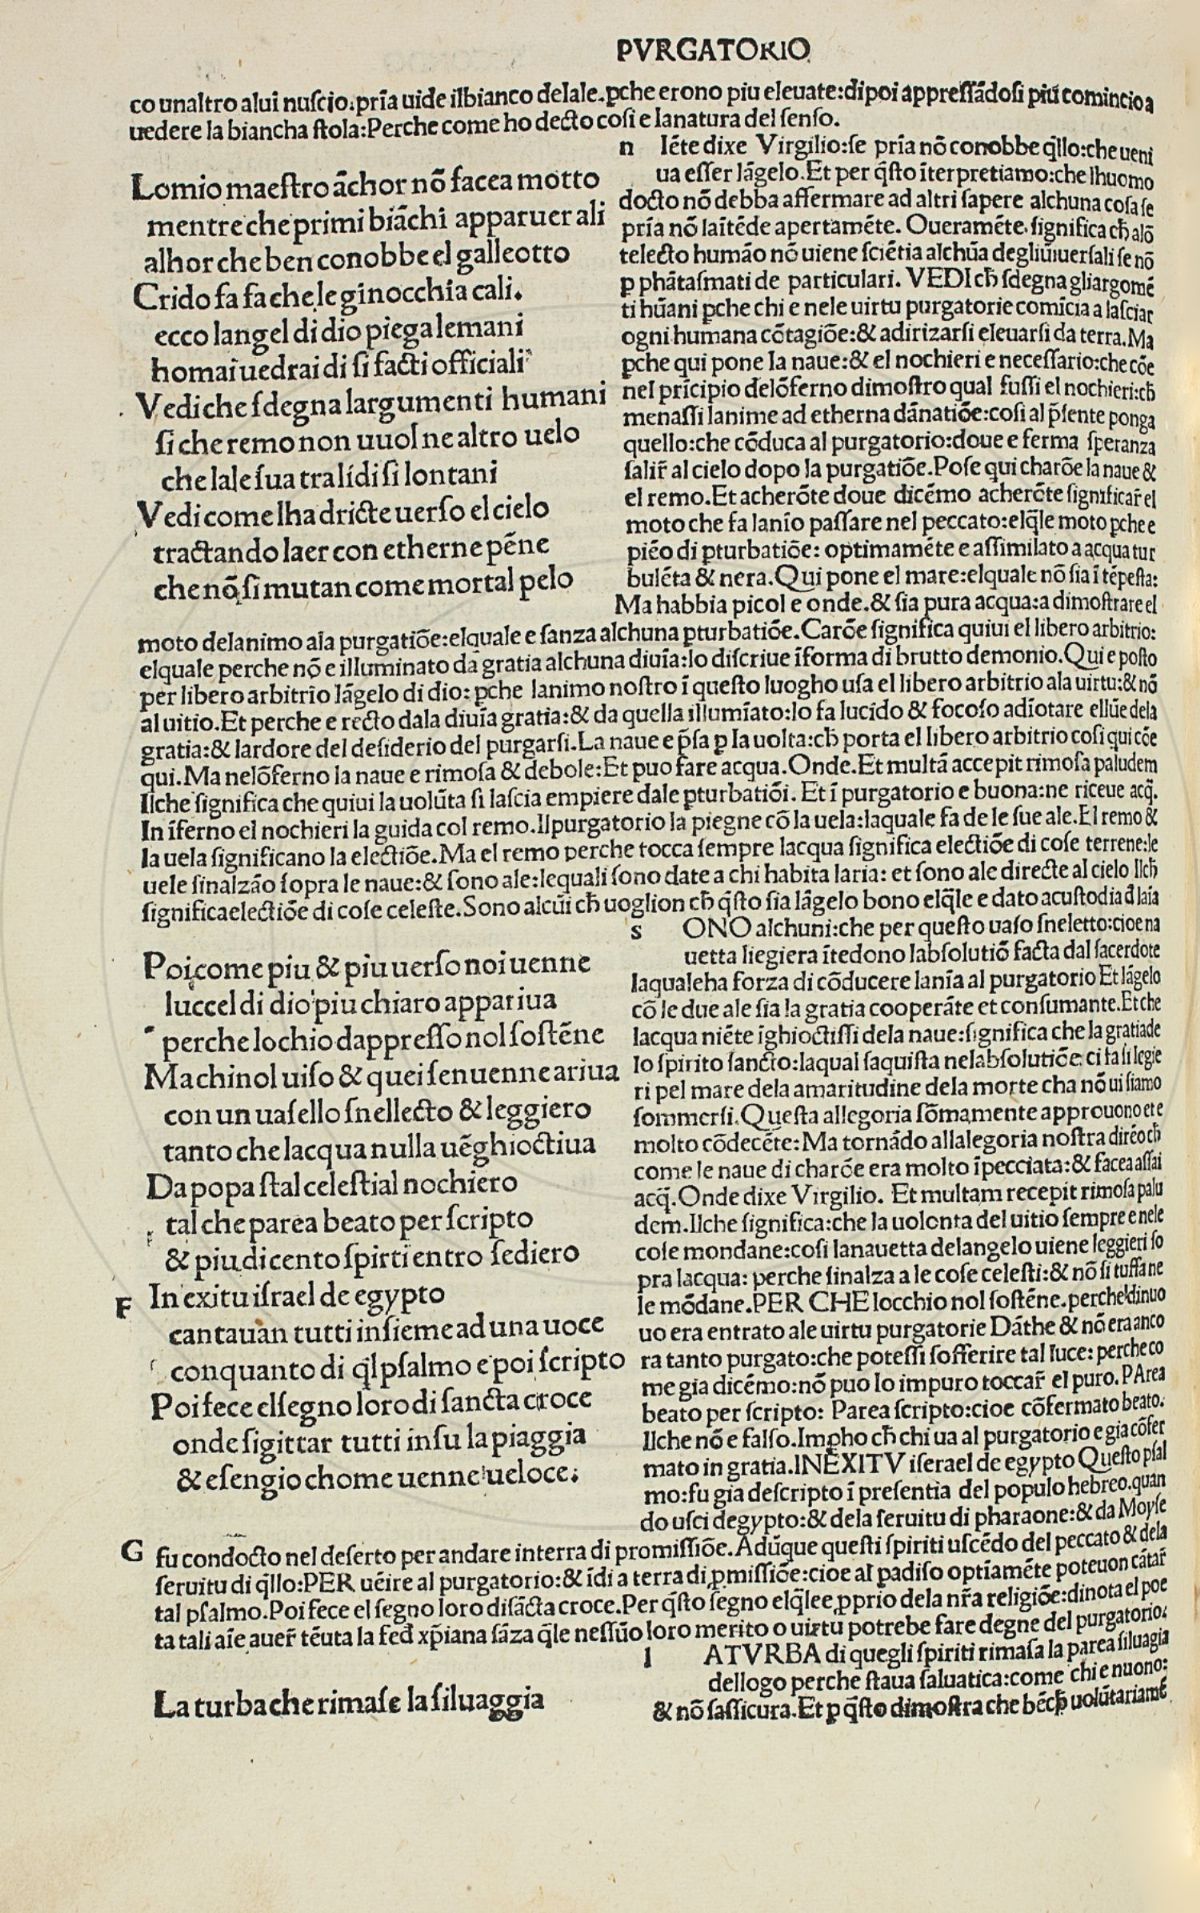 PVRGATORIO
co unaltro alui nuscio.pria uide ilbianco delale.pche erono piu eleuate:dipoi appressādosi piu comincio a
uedere la biancha stola:Perche come ho decto cosi e lanatura del senso.
Lomio maestro āchor nō facea motto
mentre che primi biāchi apparuer ali
alhor che ben conobbe el galleotto
Crido fa fa che le ginocchia cali.
ecco langel di dio piega lemani
homai uedrai di si facti officiali
Vedi che sdegna largumenti humani
si che remo non uuol ne altro uelo
che lale sua tra lidi si lontani
Vedi come lha dricte uerso el cielo
tractando laer con etherne pēne
che nō si mutan come mortal pelo
n Iēte dixe Virgilio:se pria nō conobbe q̄llo:che ueni
ua esser lāgelo.Et per q̄sto īterpretiamo:che lhuomo
docto nō debba affermare ad altri sapere alchuna cosa se
pria nō laitēde apertamēte. Oueramēte significa ch̄ alō
telecto humāo nō uiene sciētia alchūa degliūiuersali se nō
p phātasmati de particulari. VEDI ch̄ sdegna gliargomē
ti hūani pche chi e nele uirtu purgatorie comīcia a lasciar
ogni humana cōtagiōe:& adirizarsi eleuarsi da terra.Ma
pche qui pone la naue:& el nochieri e necessario:che cōe
nel prīcipio delōferno dimostro qual fussi el nochieri:ch̄
menassi lanime ad etherna dānatiōe:cosi al p̄sente ponga
quello:che cōduca al purgatorio:doue e ferma speranza
salir̄ al cielo dopo la purgatiōe.Pose qui charōe la naue &
el remo.Et acherōte doue dicēmo acherōte significar̄ el
moto che fa lanīo passare nel peccato:elq̄le moto pche e
piēo di pturbatiōe: optimamēte e assimilato a acqua tur
bulēta & nera.Qui pone el mare:elquale nō sia ī tēpesta:
Ma habbia picol e onde.& sia pura acqua:a dimostrare el
moto delanimo ala purgatiōe:elquale e sanza alchuna pturbatiōe.Carōe significa quiui el libero arbitrio:
elquale perche nō e illuminato da gratia alchuna diuia:lo discriue īforma di brutto demonio.Qui e posto
per libero arbitrio lāgelo di dio: pche lanimo nostro ī questo luogho usa el libero arbitrio ala uirtu:& nō
al uitio.Et perche e recto dala diuia gratia:& da quella illumīato:lo fa lucido & focoso adiotare ellūe dela
gratia:& lardore del desiderio del purgarsi.La naue e p̄sa p la uolta:ch̄ porta el libero arbitrio cosi qui cōe
qui.Ma nelōferno la naue e rimosa & debole:Et puo fare acqua.Onde.Et multā accepit rimosa paludem
Ilche significa che quiui la uolūta si lascia empiere dale pturbatiōi. Et ī purgatorio e buona:ne riceue acq̄.
In īferno el nochieri la guida col remo.Ilpurgatorio la piegne cō la uela:laquale fa de le sue ale.El remo &
la uela significano la electiōe.Ma el remo perche tocca sempre lacqua significa electiōe di cose terrene:le
uele sinalzāo sopra le naue:& sono ale:lequali sono date a chi habita laria: et sono ale directe al cielo Ilch̄
significaelectiōe di cose celeste.Sono alcūi ch̄ uoglion ch̄ q̄sto sia lāgelo bono elq̄le e dato acustodia d̄ laīa
Poi come piu & piu uerso noi uenne
luccel di dio piu chiaro appariua
perche lochio dappresso nol sostēne
Ma chinol uiso & quei sen uenne ariua
con un uasello snellecto & leggiero
tanto che lacqua nulla uēghioctiua
Da popa stal celestial nochiero
tal che parea beato per scripto
& piu di cento spirti entro sediero
F In exitu israel de egypto
cantauan tutti insieme ad una uoce
con quanto di q̄l psalmo e poi scripto
Poi fece el segno loro di sancta croce
onde si gittar tutti insu la piaggia
& e sen gio chome uenne ueloce.
s ONO alchuni:che per questo uaso sneletto:cioe na
uetta liegiera ītedono labsolutiō facta dal sacerdote
laqualeha forza di cōducere lania al purgatorio Et lāgelo
cō le due ale sia la gratia cooperāte et consumante.Et che
lacqua niēte īghioctissi dela naue:significa che la gratia de
lo spirito sancto:laqual saquista nelabsolutiōe ci fa si legie
ri pel mare dela amaritudine dela morte cha nō ui siamo
sommersi.Questa allegoria sōmamente approuono et e
molto cōdecēte:Ma tornādo allalegoria nostra dirēo ch̄
come le naue di charōe era molto īpecciata:& facea assai
acq̄.Onde dixe Virgilio. Et multam recepit rimosa palu
dem.Ilche significa:che la uolonta del uitio sempre e nele
cose mondane:cosi lanauetta delangelo uiene leggieri so
pra lacqua: perche sinalza a le cose celesti:& nō si tuffa ne
le mōdane.PER CHE locchio nol sostēne.perche di nuo
uo era entrato ale uirtu purgatorie Dāthe & nō era anco
ra tanto purgato:che potessi sofferire tal luce: perche co
me gia dicēmo:nō puo lo impuro toccar̄ el puro.PArea
beato per scripto: Parea scripto:cioe cōfermato beato.
Ilche nō e falso.Impho ch̄ chi ua al purgatorio e gia cōfer
mato in gratia.INEXITV iserael de egypto Questo psal
mo:fu gia descripto ī presentia del populo hebreo.quan
do usci degypto:& dela seruitu di pharaone:& da Moyse
G fu condocto nel deserto per andare interra di promissiōe.Adūque questi spiriti uscēdo del peccato & dela
seruitu di q̄llo:PER uēire al purgatorio:& īdi a terra di pmissiōe:cioe al padiso optiamēte poteuon cātar̄
tal psalmo.Poi fece el segno loro disācta croce.Per q̄sto segno elq̄le e pprio dela nr̄a religiōe:dinota el poe
ta tali aīe auer̄ tēuta la fed̄ xp̄iana sāza q̄le nessūo loro merito o uirtu potrebe fare degne del purgatorio.
La turba che rimase la siluaggia
l ATVRBA di quegli spiriti rimasa la parea siluagia
dellogo perche staua saluatica:come chi e nuono:
& nō sassicura.Et p q̄sto dimostra che bēch̄ uolūtariamē